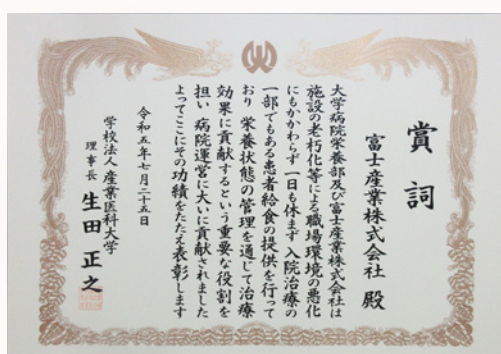 賞詞
富士産業株式会社 殿
大学病院栄養部及び富士産業株式会社は
施設の老朽化等による職場環境の悪化
にもかかわらず 一日も休まず 入院治療の
一部でもある患者給食の提供を行って
おり 栄養状態の管理を通じて治療
効果に貢献するという重要な役割を
担い 病院運営に大いに貢献されました
よってここにその功績をたたえ表彰します
令和五年七月二十五日
学校法人 産業医科大学
理事長 生田正之